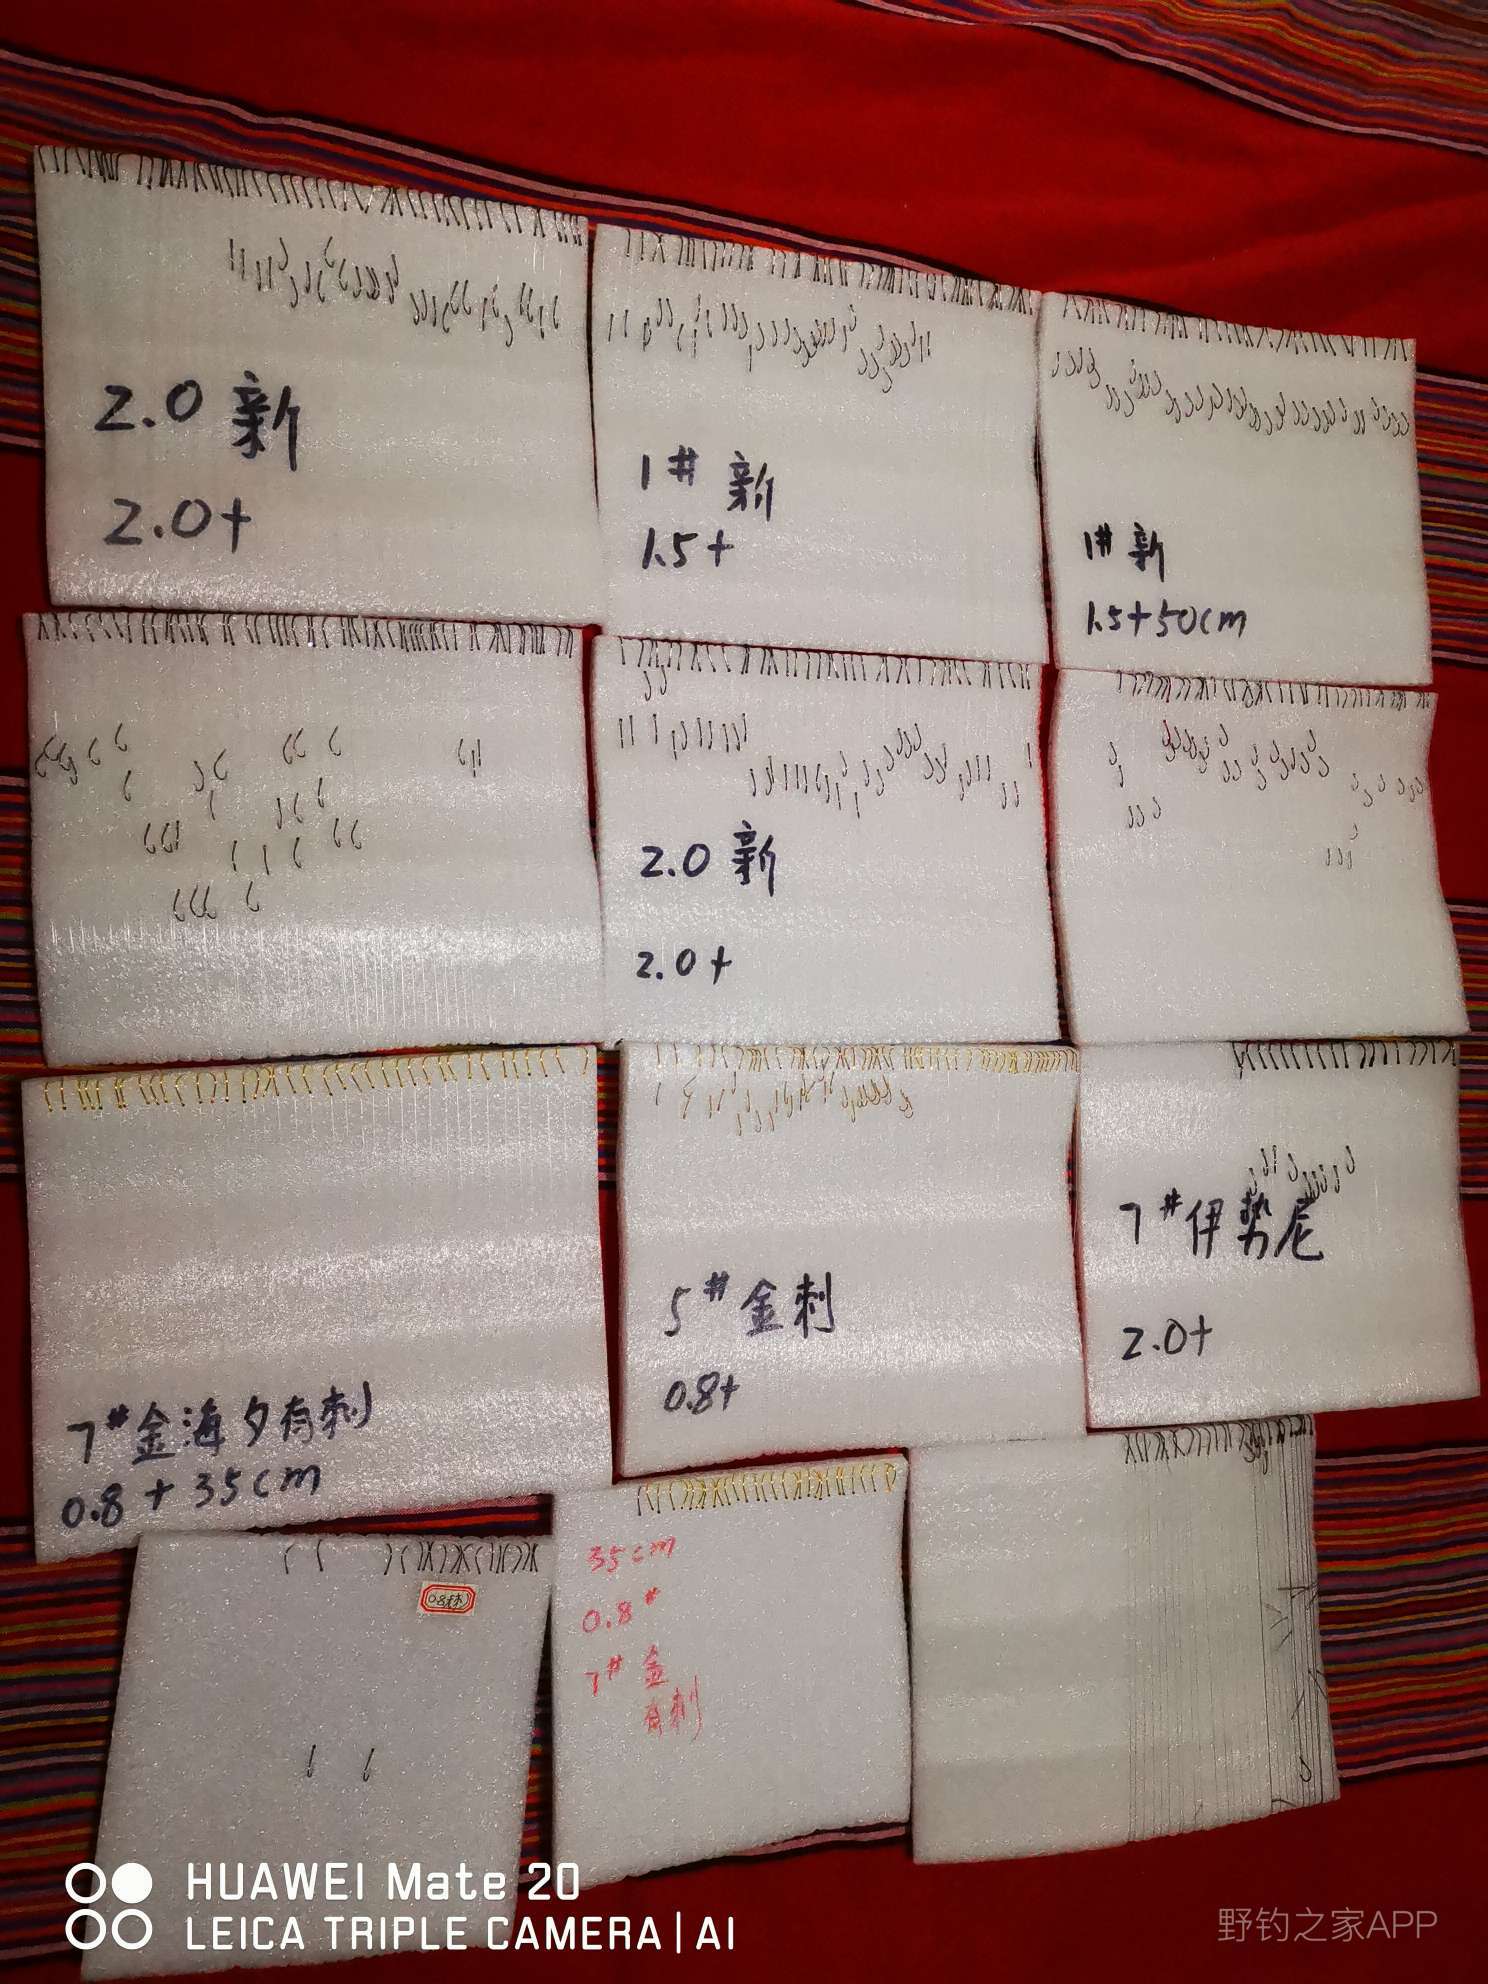 2.0 新
2.0+
1# 新
1.5+
1# 新
1.5+50cm
2.0 新
2.0+
7# 金海夕有刺
0.8+35cm
5# 金刺
0.8+
7# 伊势尼
2.0+
35cm
0.8#
7# 金
有刺
HUAWEI Mate 20
LEICA TRIPLE CAMERA | AI
野钓之家APP